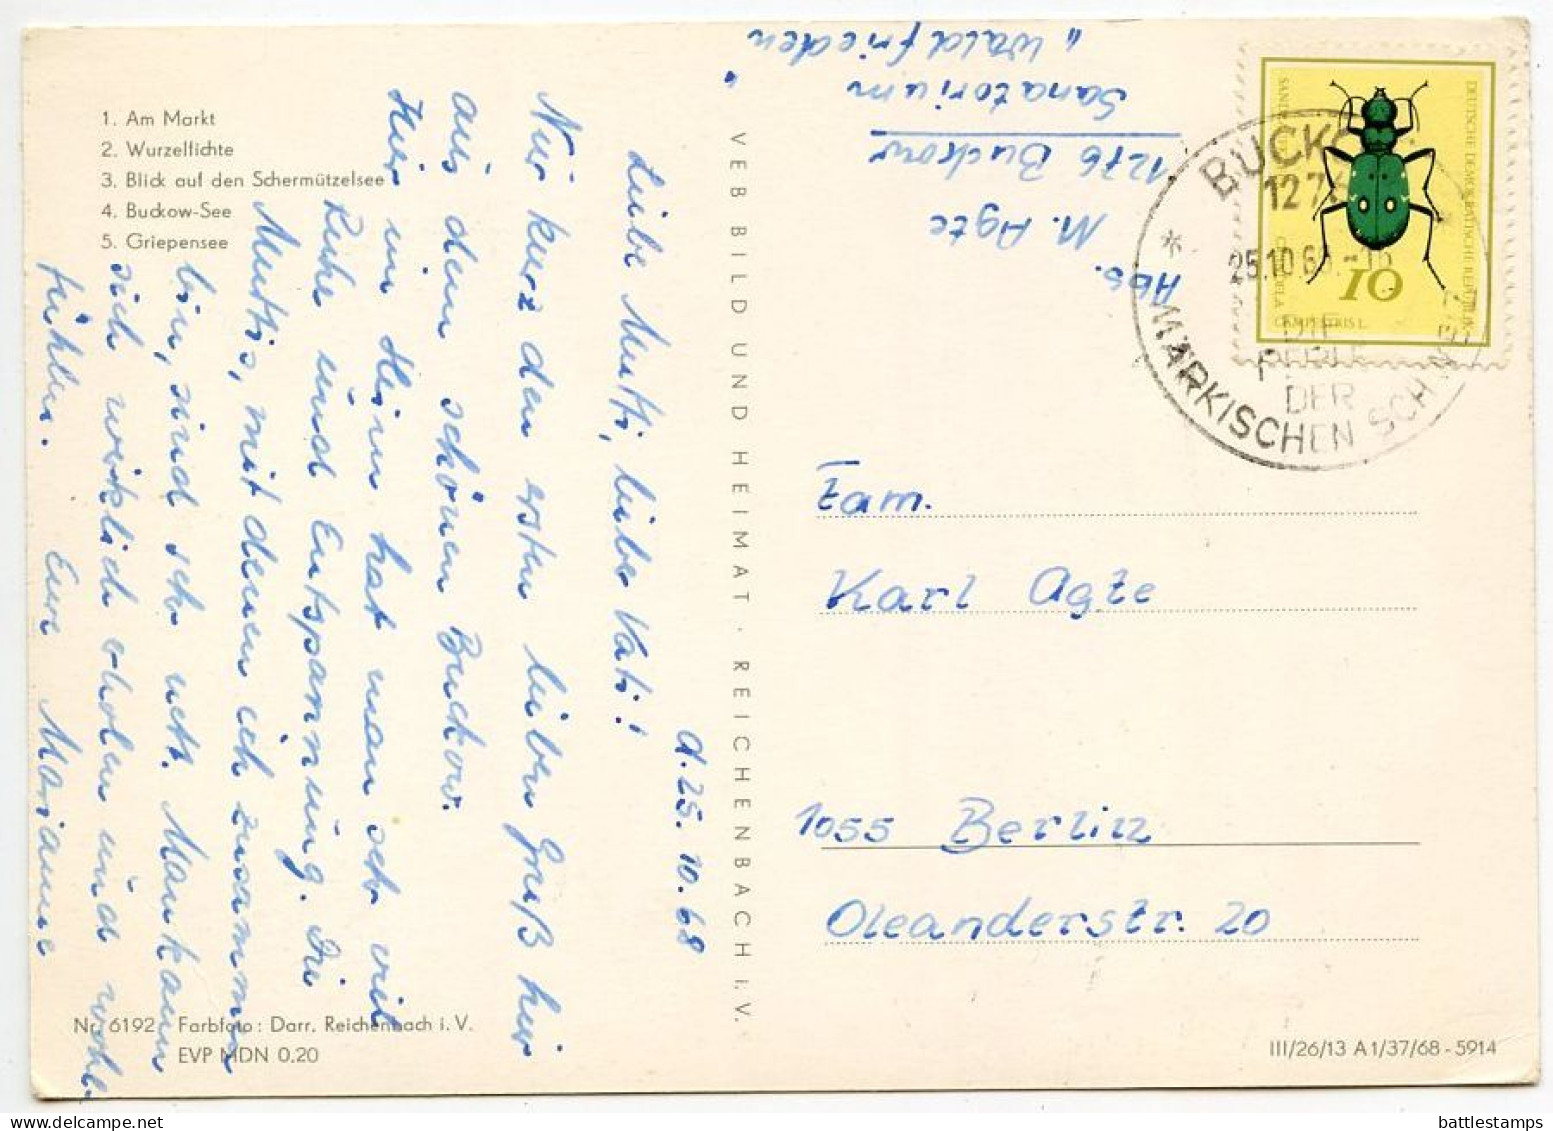 1. Am Markt
2. Wurzelfichte
3. Blick auf den Schermützelsee
4. Buckow-See
5. Griepensee
d. 25.10.68
Liebe Mutti, liebe Vati!
Nur kurz den ersten lieben Gruß hier
aus dem schönen Buckow.
Hier im Heim hat man sehr viel
Ruhe und Entspannung. Die
Muttis, mit denen ich zusammen
bin, sind sehr nett. Man kann
sich wirklich erholen und wohl-
fühlen. Eure Marianne
Nr. 6192 Farbfoto: Darr, Reichenbach i. V.
EVP MDN 0.20
VEB BILD UND HEIMAT · REICHENBACH i. V.
Abs. M. Agte
1276 Buckow
Sanatorium
"Waldfrieden"
DEUTSCHE DEMOKRATISCHE REPUBLIK
CAMPESTRIS L.
10
BUCKOW
25.10.68
DIE
PERLE
DER
MÄRKISCHEN SCHWEIZ
Fam.
Karl Agte
1055 Berlin
Oleanderstr. 20
III/26/13 A 1/37/68 - 5914
battlestamps